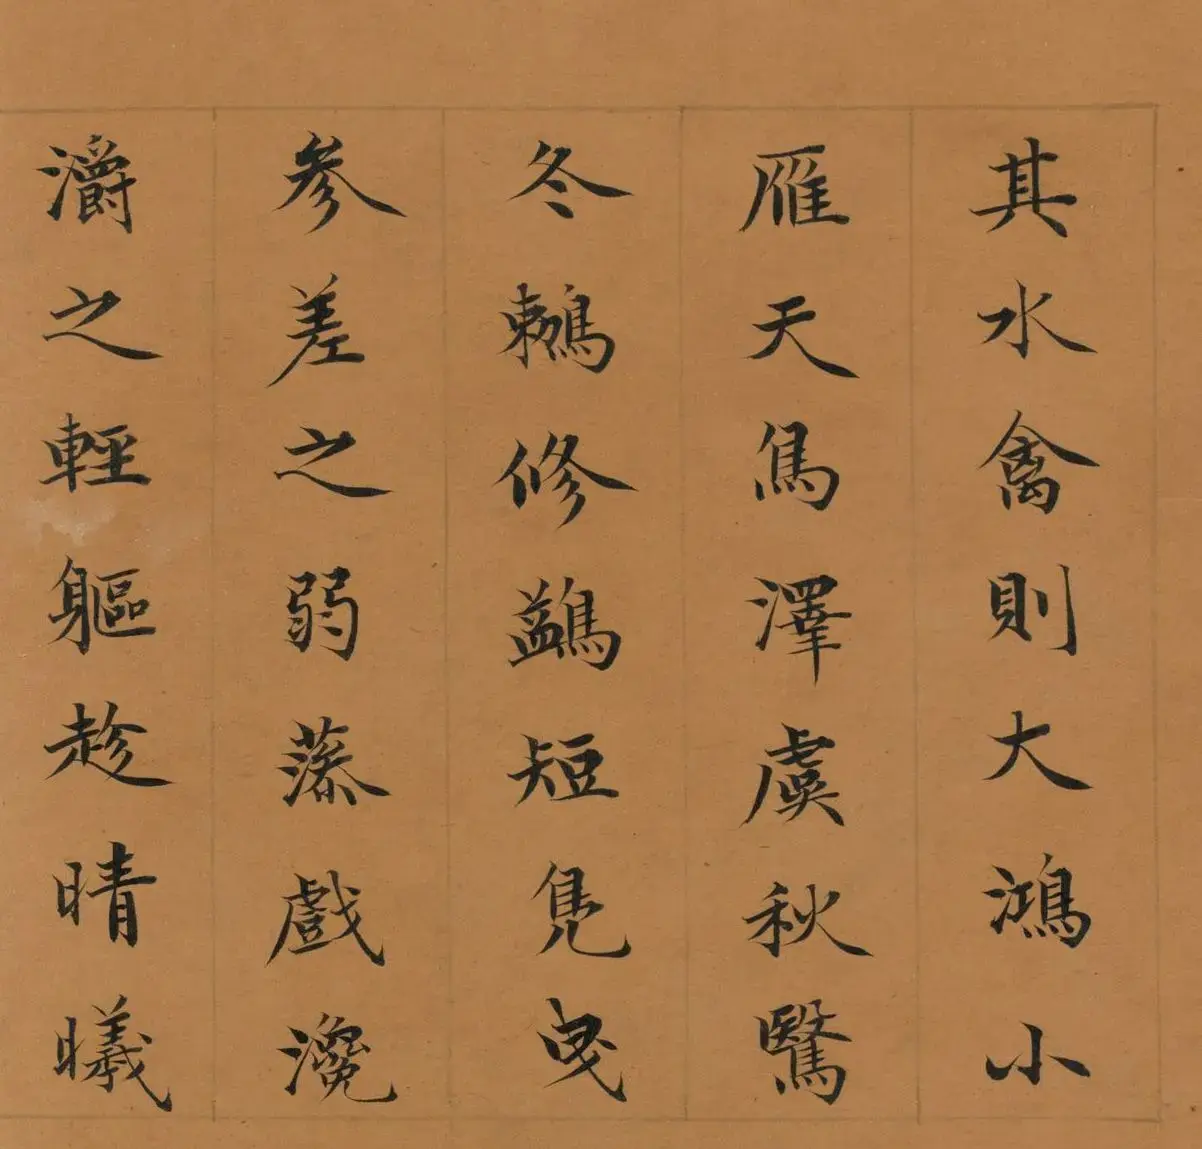 其水禽則大鴻小
雁天鳥澤虞秋鷖
冬鶒修鷁短鳧曳
參差之弱藻戲瀺
灂之輕軀趁晴曦